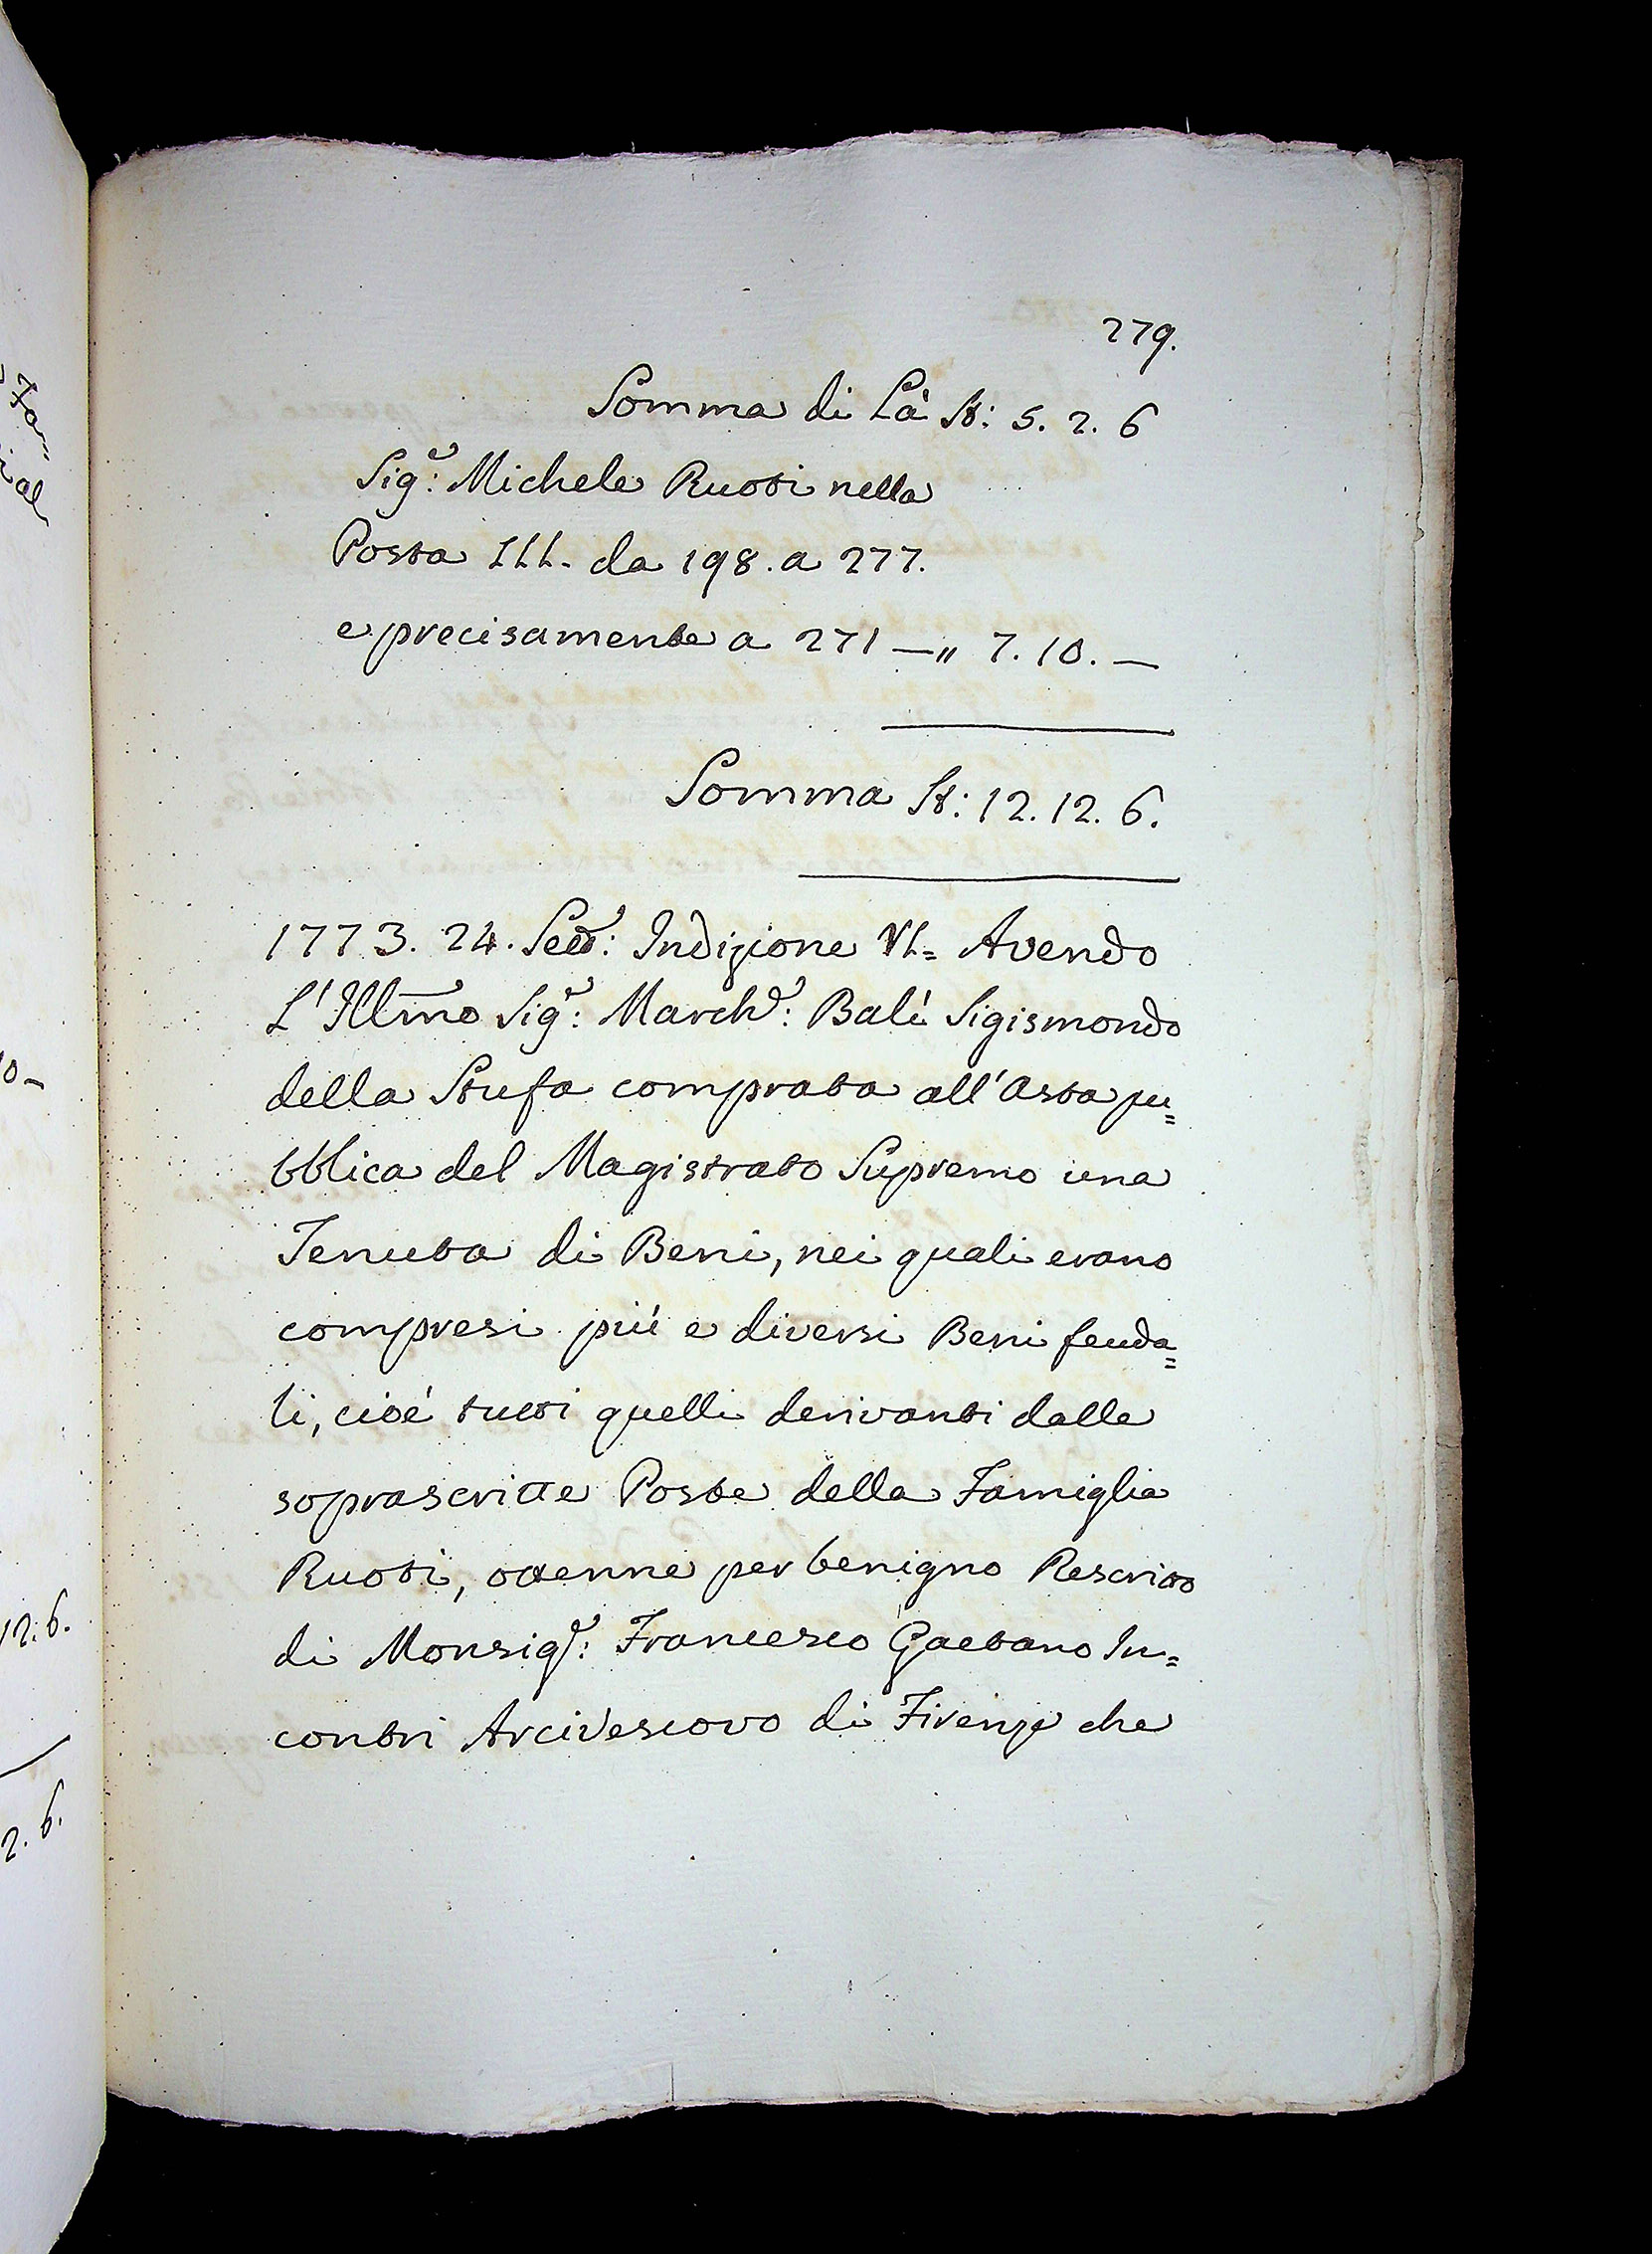 279.
Somma di Là St: 5. 2. 6
Sig.r: Michele Ruoti nella
Posta III. da 198. a 277.
e precisamente a 271 —„ 7. 10. —
Somma St: 12. 12. 6.
1773. 24. Sett.e: Indizione VI= Avendo
L'Illmo Sig.r: March.e: Balì Sigismondo
della Stufa comprata all'Asta pu=
bblica del Magistrato Supremo una
Tenuta di Beni, nei quali erano
compresi più e diversi Beni feuda=
li, cioè tutti quelli derivanti dalle
soprascritte Poste della Famiglia
Ruoti, ottenne per benigno Rescritto
di Monsig.r: Francesco Gaetano In=
contri Arcivescovo di Firenze che
10—
12. 6.
2. 6.